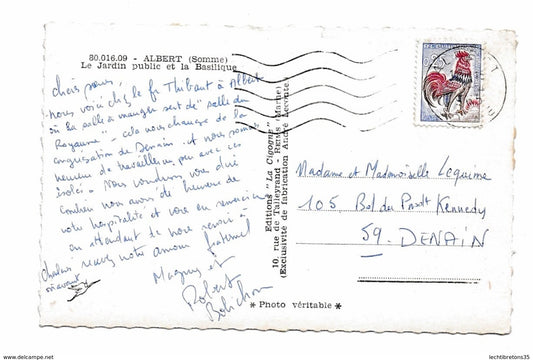 80.016.09 - ALBERT (Somme)
Le Jardin public et la Basilique
chers soeurs,
nous voici chez le fr Thibaut à Albert
où la salle à manger sert de "salle du
Royaume" - cela nous change de la
congrégation de Denain - et nous sommes
heureux de travailler un peu avec ces
isolés. Nous voudrions vous dire
combien nous avons été heureux de
votre hospitalité et vous en remercions
en attendant de nous revoir à
recevez notre amour fraternel
Magguy et
Robert
Editions "La Cigogne"
10, rue de Talleyrand REIMS (Marne)
(Exclusivité de fabrication André Leconte)
Madame et Mademoiselle Lequime
105 Bd du Pnsdt Kennedy
59. DENAIN
* Photo véritable *
www.delcampe.net
lechtibretons35